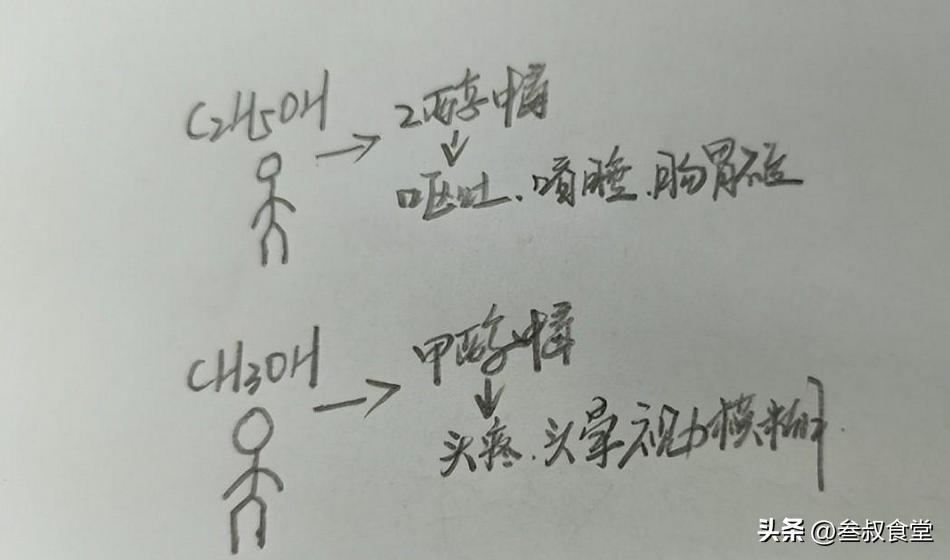 C2H5OH
乙醇中毒
呕吐、嗜睡、肠胃炎
CH3OH
甲醇中毒
头疼、头晕、视力模糊
头条 @叁叔食堂